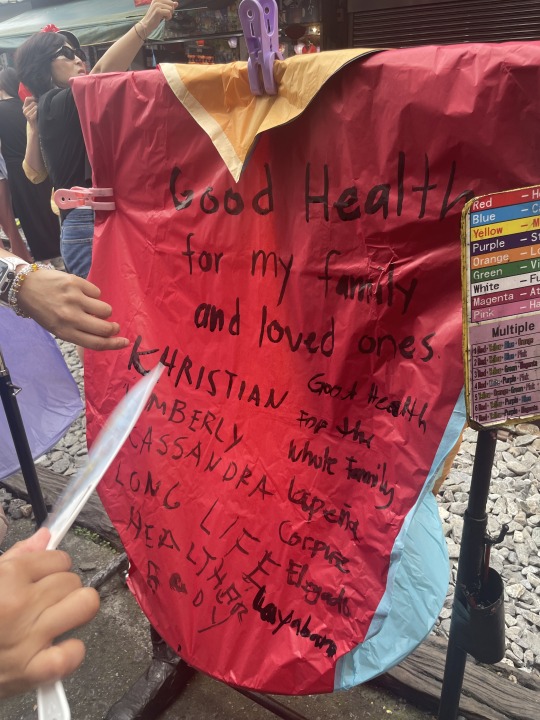 Good Health
for my family
and loved ones
KHRISTIAN
MBERLY
CASSANDRA
LONG LIFE
HEALTHY
BODY
Good Health
For the
Whole Family
Lapena
Corpuz
Elgado
Layabara
Red – H
Blue – C
Yellow – M
Purple – St
Orange – Lo
Green – Vi
White – Fu
Magenta – At
Pink – Ha
Multiple